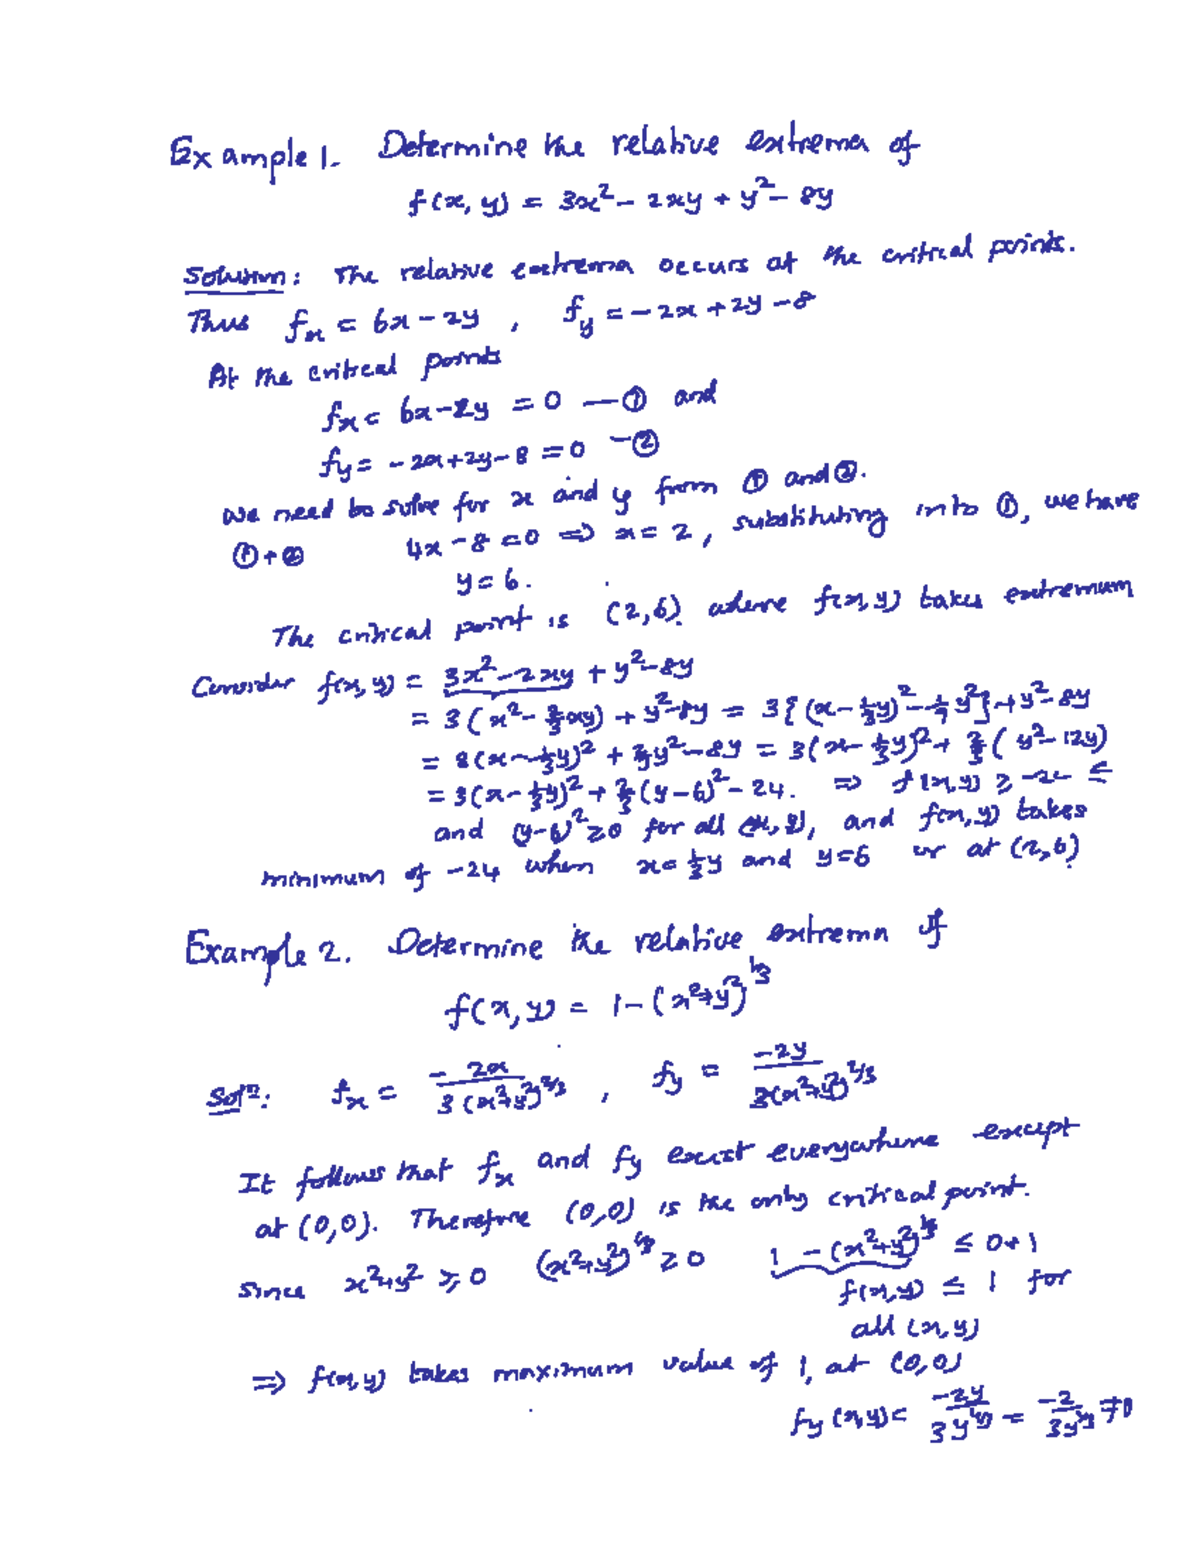 Example 1. Determine the relative extrema of
f(x, y) = 3x² - 2xy + y² - 8y
Solution: The relative extrema occurs at the critical points.
Thus fₓ = 6x - 2y , f_y = -2x + 2y - 8
At the critical points
fₓ = 6x - 2y = 0 — ① and
f_y = -2x + 2y - 8 = 0 - ②
We need to solve for x and y from ① and ②.
① + ② 4x - 8 = 0 ⇒ x = 2, substituting into ①, we have
y = 6.
The critical point is (2,6) where f(x,y) takes extremum
Consider f(x,y) = 3x² - 2xy + y² - 8y
= 3(x² - 2/3 xy) + y² - 8y = 3{(x - 1/3 y)² - 1/9 y²} + y² - 8y
= 3(x - 1/3 y)² + 2/3 y² - 8y = 3(x - 1/3 y)² + 2/3 (y² - 12y)
= 3(x - 1/3 y)² + 2/3 (y - 6)² - 24. ⇒ f(x,y) ≥ -24
and (y-6)² ≥ 0 for all (x, y), and f(x,y) takes
minimum of -24 when x = 1/3 y and y = 6 or at (2,6)
Example 2. Determine the relative extrema of
f(x, y) = 1 - (x² + y²)^1/3
Solⁿ: fₓ = -2x / 3(x² + y²)^2/3 , f_y = -2y / 3(x² + y²)^2/3
It follows that fₓ and f_y exist everywhere except
at (0,0). Therefore (0,0) is the only critical point.
Since x² + y² ≥ 0 (x² + y²)^1/3 ≥ 0 1 - (x² + y²)^1/3 ≤ 0 + 1
f(x,y) ≤ 1 for
all (x, y)
⇒ f(x,y) takes maximum value of 1, at (0,0)
f_y (x,y) = -2y / 3y^4/3 = -2 / 3y^1/3 ≠ 0